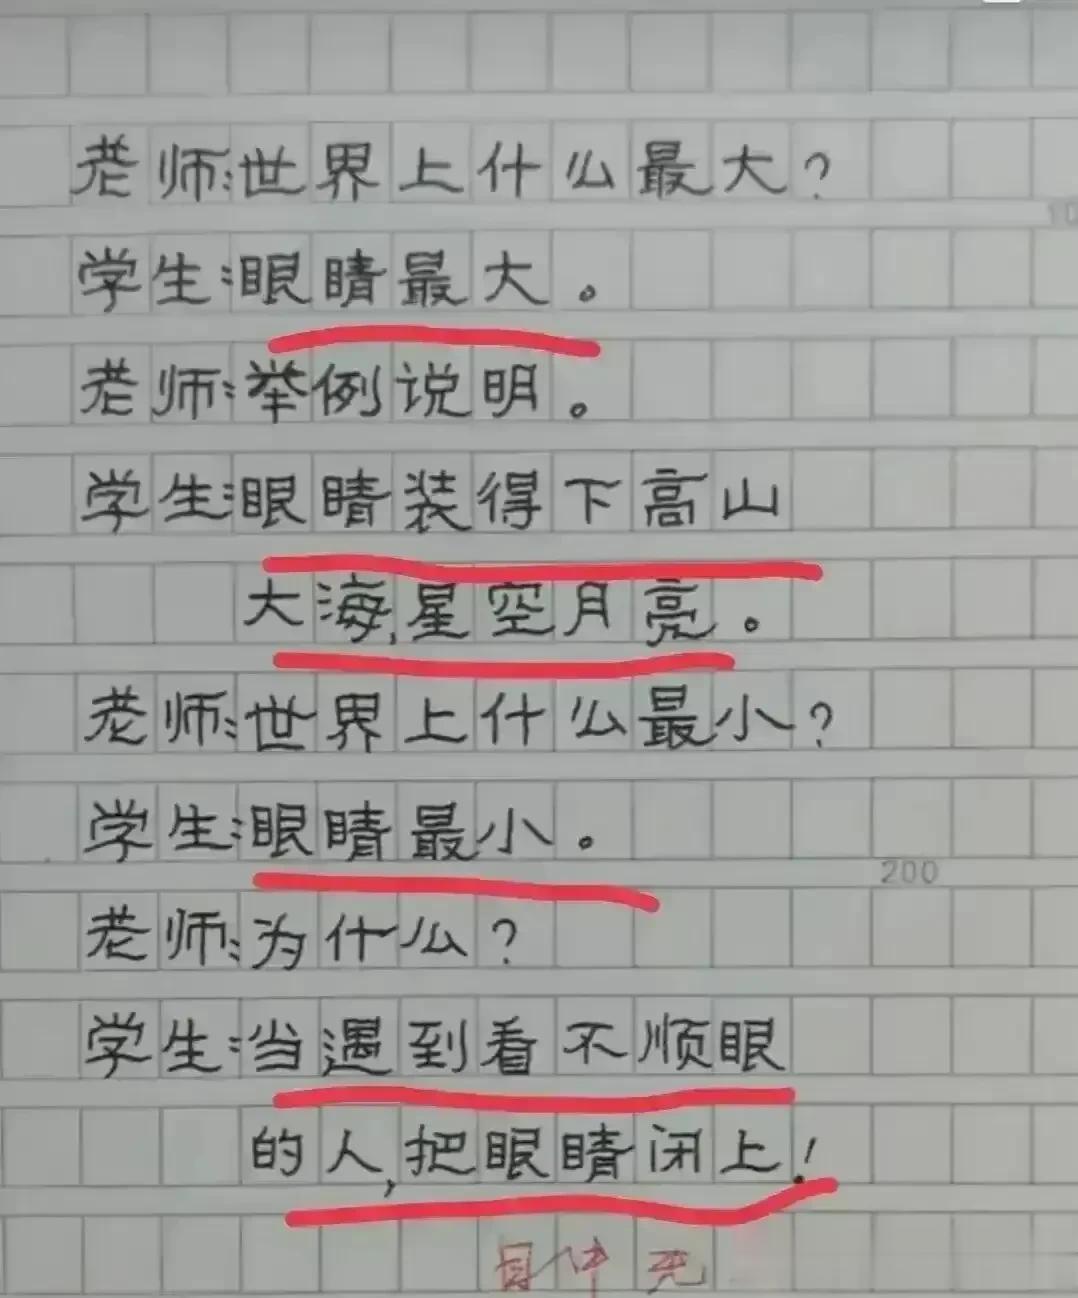 10
老师:世界上什么最大?
学生:眼睛最大。
老师:举例说明。
学生:眼睛装得下高山
大海,星空月亮。
老师:世界上什么最小?
学生:眼睛最小。
200
老师:为什么?
学生:当遇到看不顺眼
的人,把眼睛闭上!
目中无